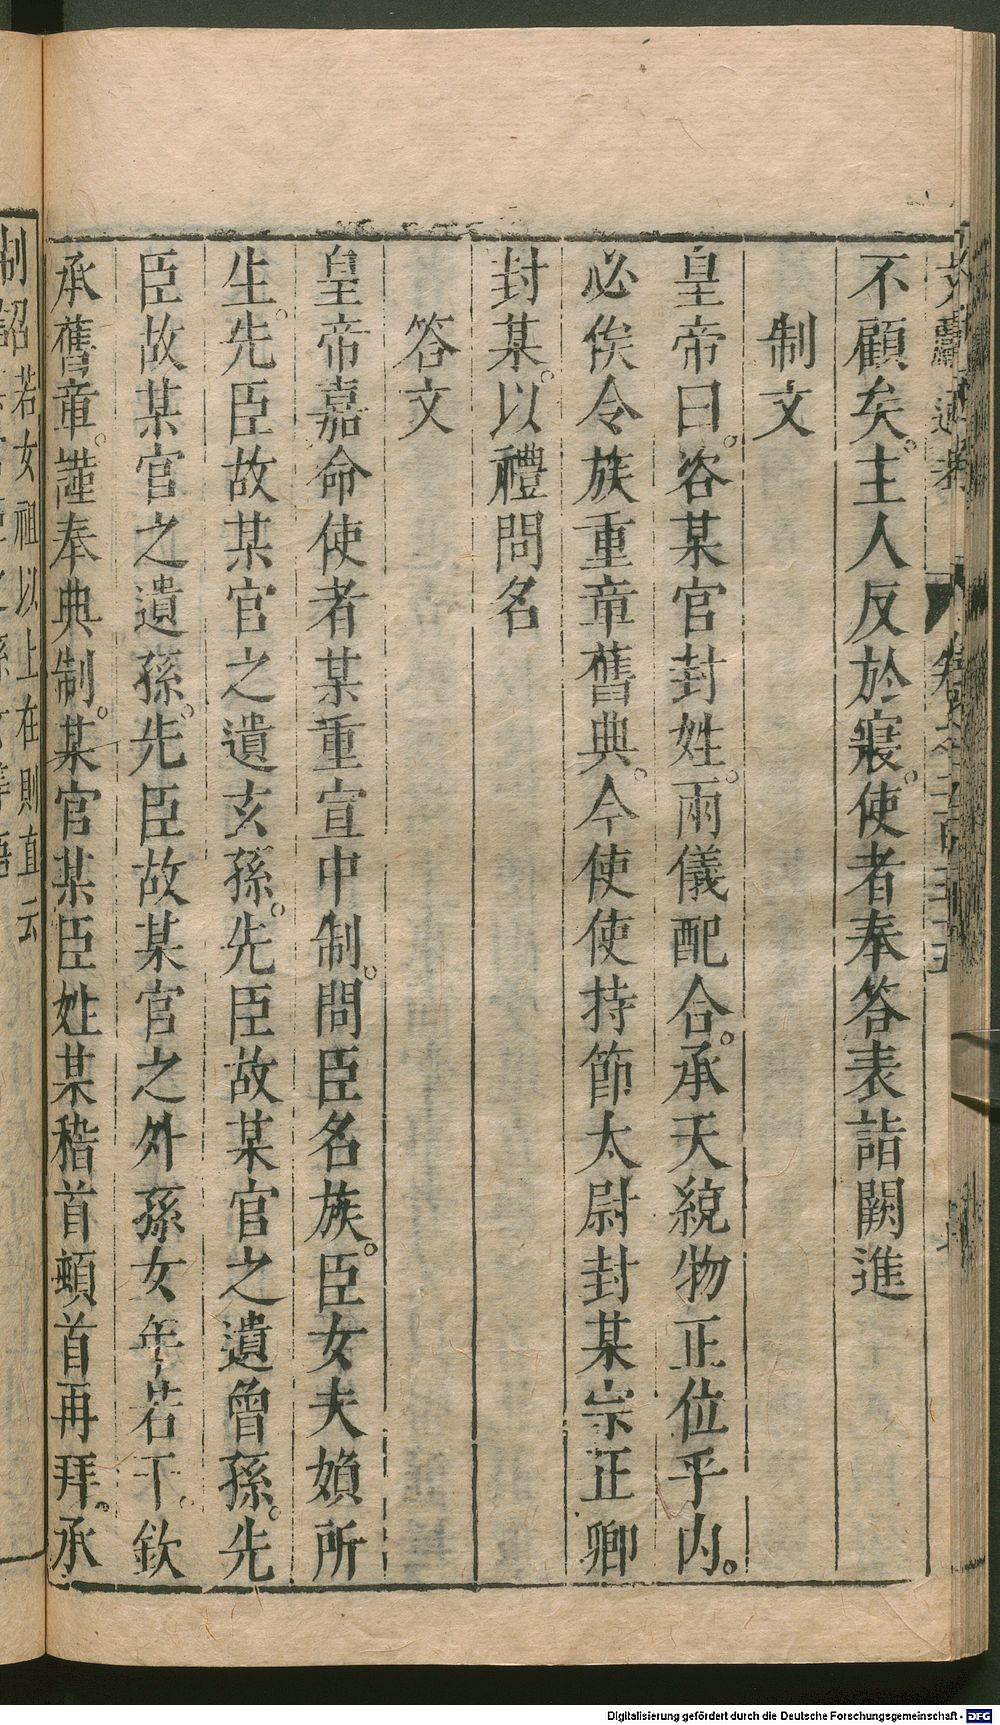 不顧矣。主人反於寢。使者奉答表詣闕進
制文
皇帝曰。咨某官封姓。兩儀配合。承天統物正位乎內。
必俟令族重章舊典。今使使持節太尉封某宗正卿
封某。以禮問名
答文
皇帝嘉命使者某重宣中制。問臣名族。臣女夫婦所
生。先臣故某官之遺玄孫。先臣故某官之遺曾孫。先
臣故某官之遺孫。先臣故某官之外孫女年若干。欽
承舊章。謹奉典制。某官某臣姓某稽首頓首再拜。承
制詔若女祖以上在則直云
Digitalisierung gefördert durch die Deutsche Forschungsgemeinschaft - DFG